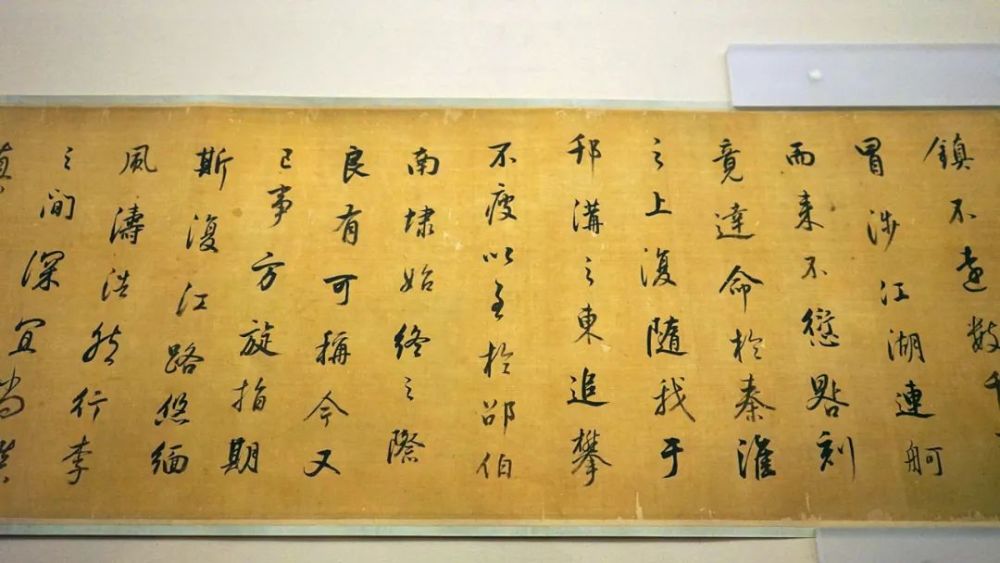 鎮不遠數千
冒涉江湖連舸
而來不愆晷刻
竟達命於秦淮
之上復隨我于
邗溝之東追攀
不疲以至於邵伯
南埭始終之際
良有可稱今又
已事方旋指期
斯復江路悠緬
風濤浩然行李
之間深宜尚慎